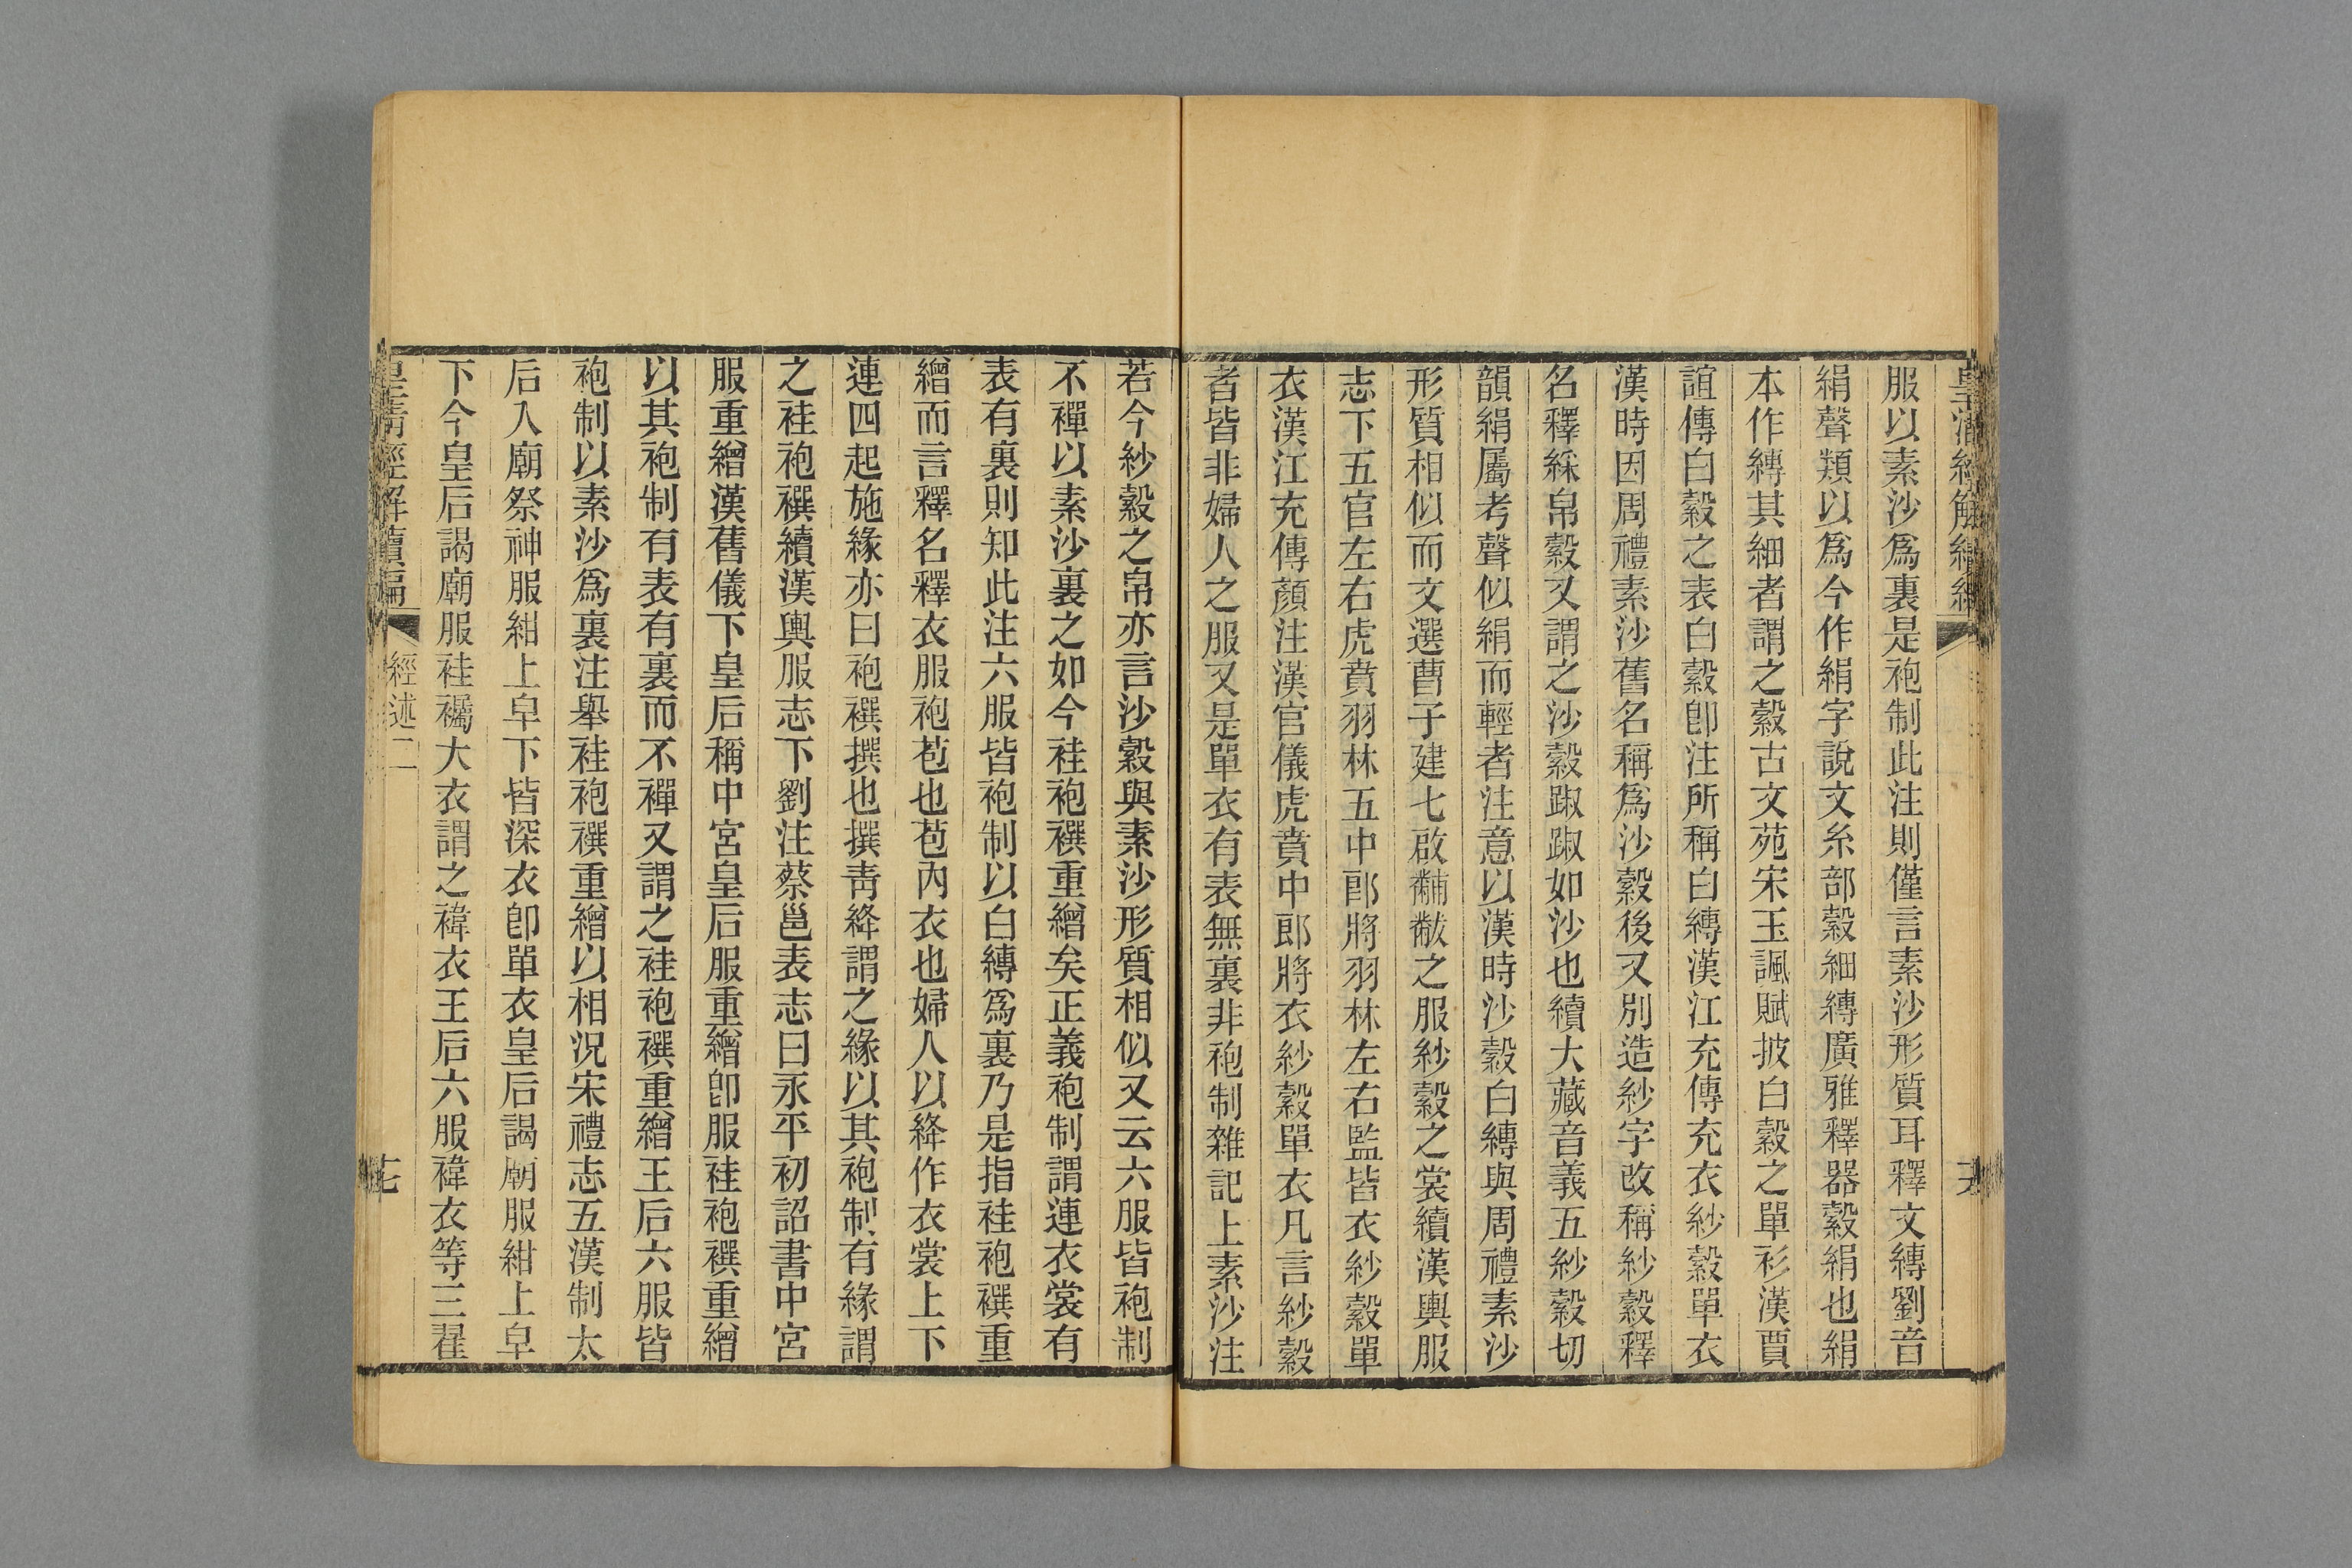 服以素沙爲裏是袍制此注則僅言素沙形質耳釋文縳劉音
絹聲類以爲今作絹字說文糸部縠細縳廣雅釋器縠絹也絹
本作縳其細者謂之縠古文苑宋玉諷賦披白縠之單衫漢賈
誼傳白縠之表白縠卽注所稱白縳漢江充傳充衣紗縠單衣
漢時因周禮素沙舊名稱爲沙縠後又別造紗字改稱紗縠釋
名釋綵帛縠又謂之沙縠踧踧如沙也續大藏音義五紗縠切
韻絹屬考聲似絹而輕者注意以漢時沙縠白縳與周禮素沙
形質相似而文選曹子建七啟黼黻之服紗縠之裳續漢輿服
志下五官左右虎賁羽林五中郎將羽林左右監皆衣紗縠單
衣漢江充傳顏注漢官儀虎賁中郎將衣紗縠單衣凡言紗縠
者皆非婦人之服又是單衣有表無裏非袍制雜記上素沙注
若今紗縠之帛亦言沙縠與素沙形質相似又云六服皆袍制
不襌以素沙裏之如今袿袍襈重繒矣正義袍制謂連衣裳有
表有裏則知此注六服皆袍制以白縳爲裏乃是指袿袍襈重
繒而言釋名釋衣服袍苞也苞內衣也婦人以絳作衣裳上下
連四起施緣亦曰袍襈撰也撰靑絳謂之緣以其袍制有緣謂
之袿袍襈續漢輿服志下劉注蔡邕表志曰永平初詔書中宮
服重繒漢舊儀下皇后稱中宮皇后服重繒卽服袿袍襈重繒
以其袍制有表有裏而不襌又謂之袿袍襈重繒王后六服皆
袍制以素沙爲裏注舉袿袍襈重繒以相況宋禮志五漢制太
后入廟祭神服紺上皁下皆深衣卽單衣皇后謁廟服紺上皁
下今皇后謁廟服袿䙱大衣謂之褘衣王后六服褘衣等三翟
皇淸經解續編
經述二